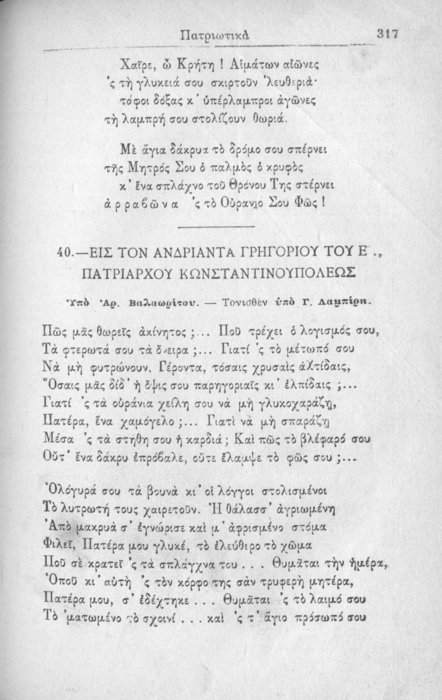 Πατριωτικὰ 317
Χαῖρε, ὦ Κρήτη ! Αἱμάτων αἰῶνες
'ς τὴ γλυκειά σου σκιρτοῦν 'λευθεριά·
τόφοι δόξας κ' ὑπέρλαμπροι ἀγῶνες
τὴ λαμπρή σου στολίζουν θωριά.
Μὲ ἅγια δάκρυα τὸ δρόμο σου σπέρνει
τῆς Μητρός Σου ὁ παλμὸς ὁ κρυφὸς
κ' ἕνα σπλάχνο τοῦ Θρόνου Της στέρνει
ἀρραβῶνα 'ς τὸ Οὐράνιο Σου Φῶς !
40.—ΕΙΣ ΤΟΝ ΑΝΔΡΙΑΝΤΑ ΓΡΗΓΟΡΙΟΥ ΤΟΥ Ε'.,
ΠΑΤΡΙΑΡΧΟΥ ΚΩΝΣΤΑΝΤΙΝΟΥΠΟΛΕΩΣ
Ὑπὸ Ἀρ. Βαλαωρίτου. — Τονισθὲν ὑπὸ Γ. Λαμπίρη.
Πῶς μᾶς θωρεῖς ἀκίνητος ;... Ποῦ τρέχει ὁ λογισμός σου,
Τὰ φτερωτά σου τὰ ὄνειρα ;... Γιατί 'ς τὸ μέτωπό σου
Νὰ μὴ φυτρώνουν, Γέροντα, τόσαις χρυσαὶς ἀχτίδαις,
Ὅσαις μᾶς δίδ' ἡ ὄψις σου παρηγοριαῖς κι' ἐλπίδαις ;...
Γιατί 'ς τὰ οὐράνια χείλη σου νὰ μὴ γλυκοχαράζῃ,
Πατέρα, ἕνα χαμόγελο ;... Γιατὶ νὰ μὴ σπαράζῃ
Μέσα 'ς τὰ στήθη σου ἡ καρδιά ; Καὶ πῶς τὸ βλέφαρό σου
Οὔτ' ἕνα δάκρυ ἐπρόβαλε, οὔτε ἔλαμψε τὸ φῶς σου ;...
Ὁλόγυρά σου τὰ βουνὰ κι' οἱ λόγγοι στολισμένοι
Τὸ λυτρωτή τους χαιρετοῦν. Ἡ θάλασσ' ἀγριωμένη
Ἀπὸ μακρυὰ σ' ἐγνώρισε καὶ μ' ἀφρισμένο στόμα
Φιλεῖ, Πατέρα μου γλυκέ, τὸ ἐλεύθερο τὸ χῶμα
Ποῦ σὲ κρατεῖ 'ς τὰ σπλάγχνα του . . . Θυμᾶται τὴν ἡμέρα,
Ὁποῦ κι' αὐτὴ 'ς τὸν κόρφο της σὰν τρυφερὴ μητέρα,
Πατέρα μου, σ' ἐδέχτηκε . . . Θυμᾶται 'ς τὸ λαιμό σου
Τὸ 'ματωμένο τὸ σχοινί . . . καὶ 'ς τ' ἅγιο πρόσωπό σου